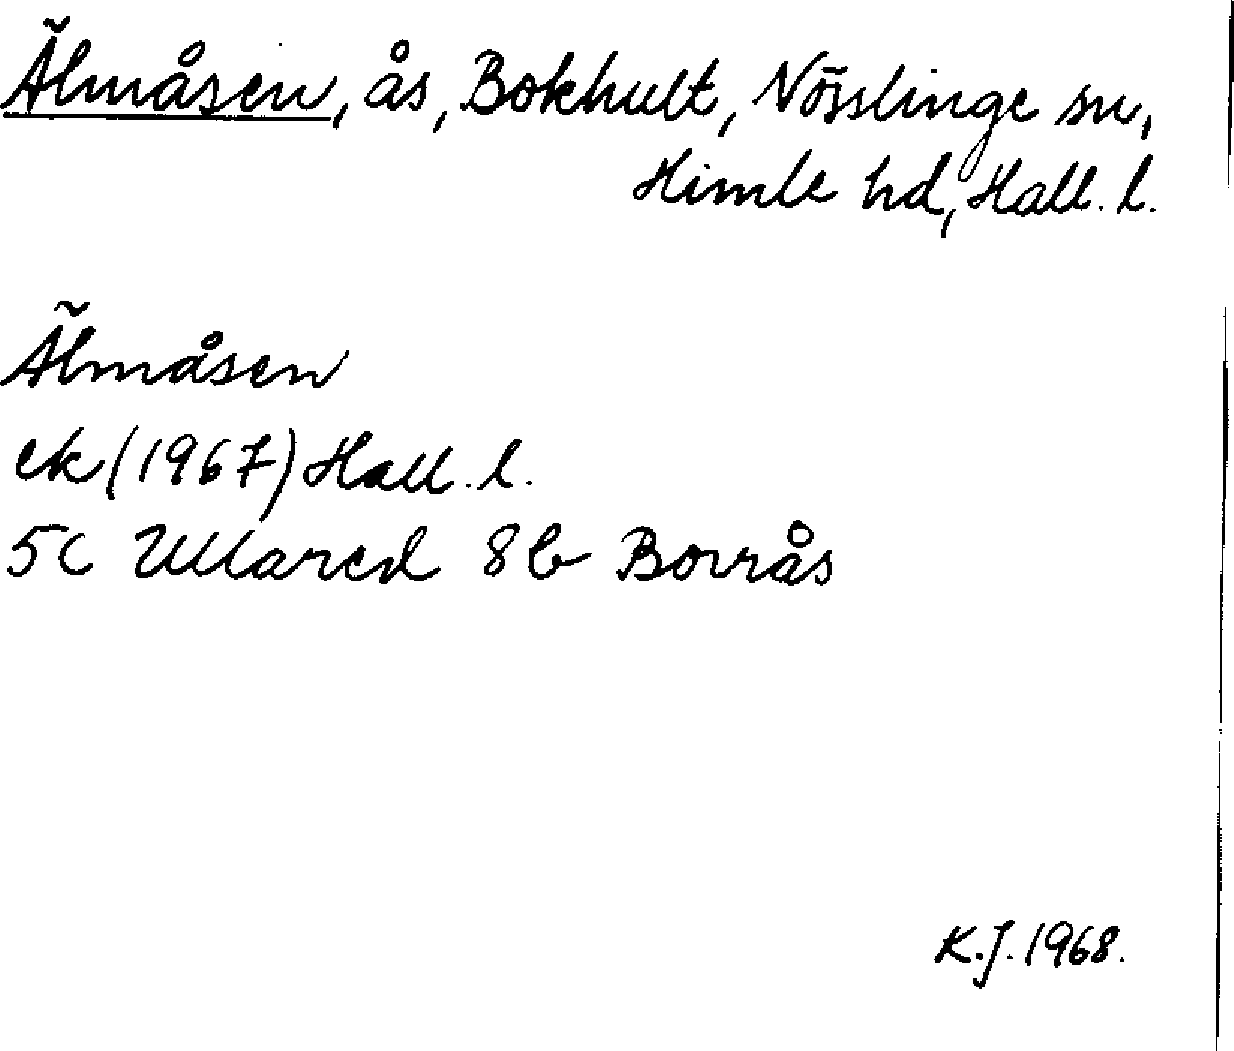 Älmåsen, ås, Bokhult, Nösslinge sn,
Himle hd, Hall. l.
Älmåsen
ek (1967) Hall. l.
5c Ullared 8b Borrås
K.J. 1968.